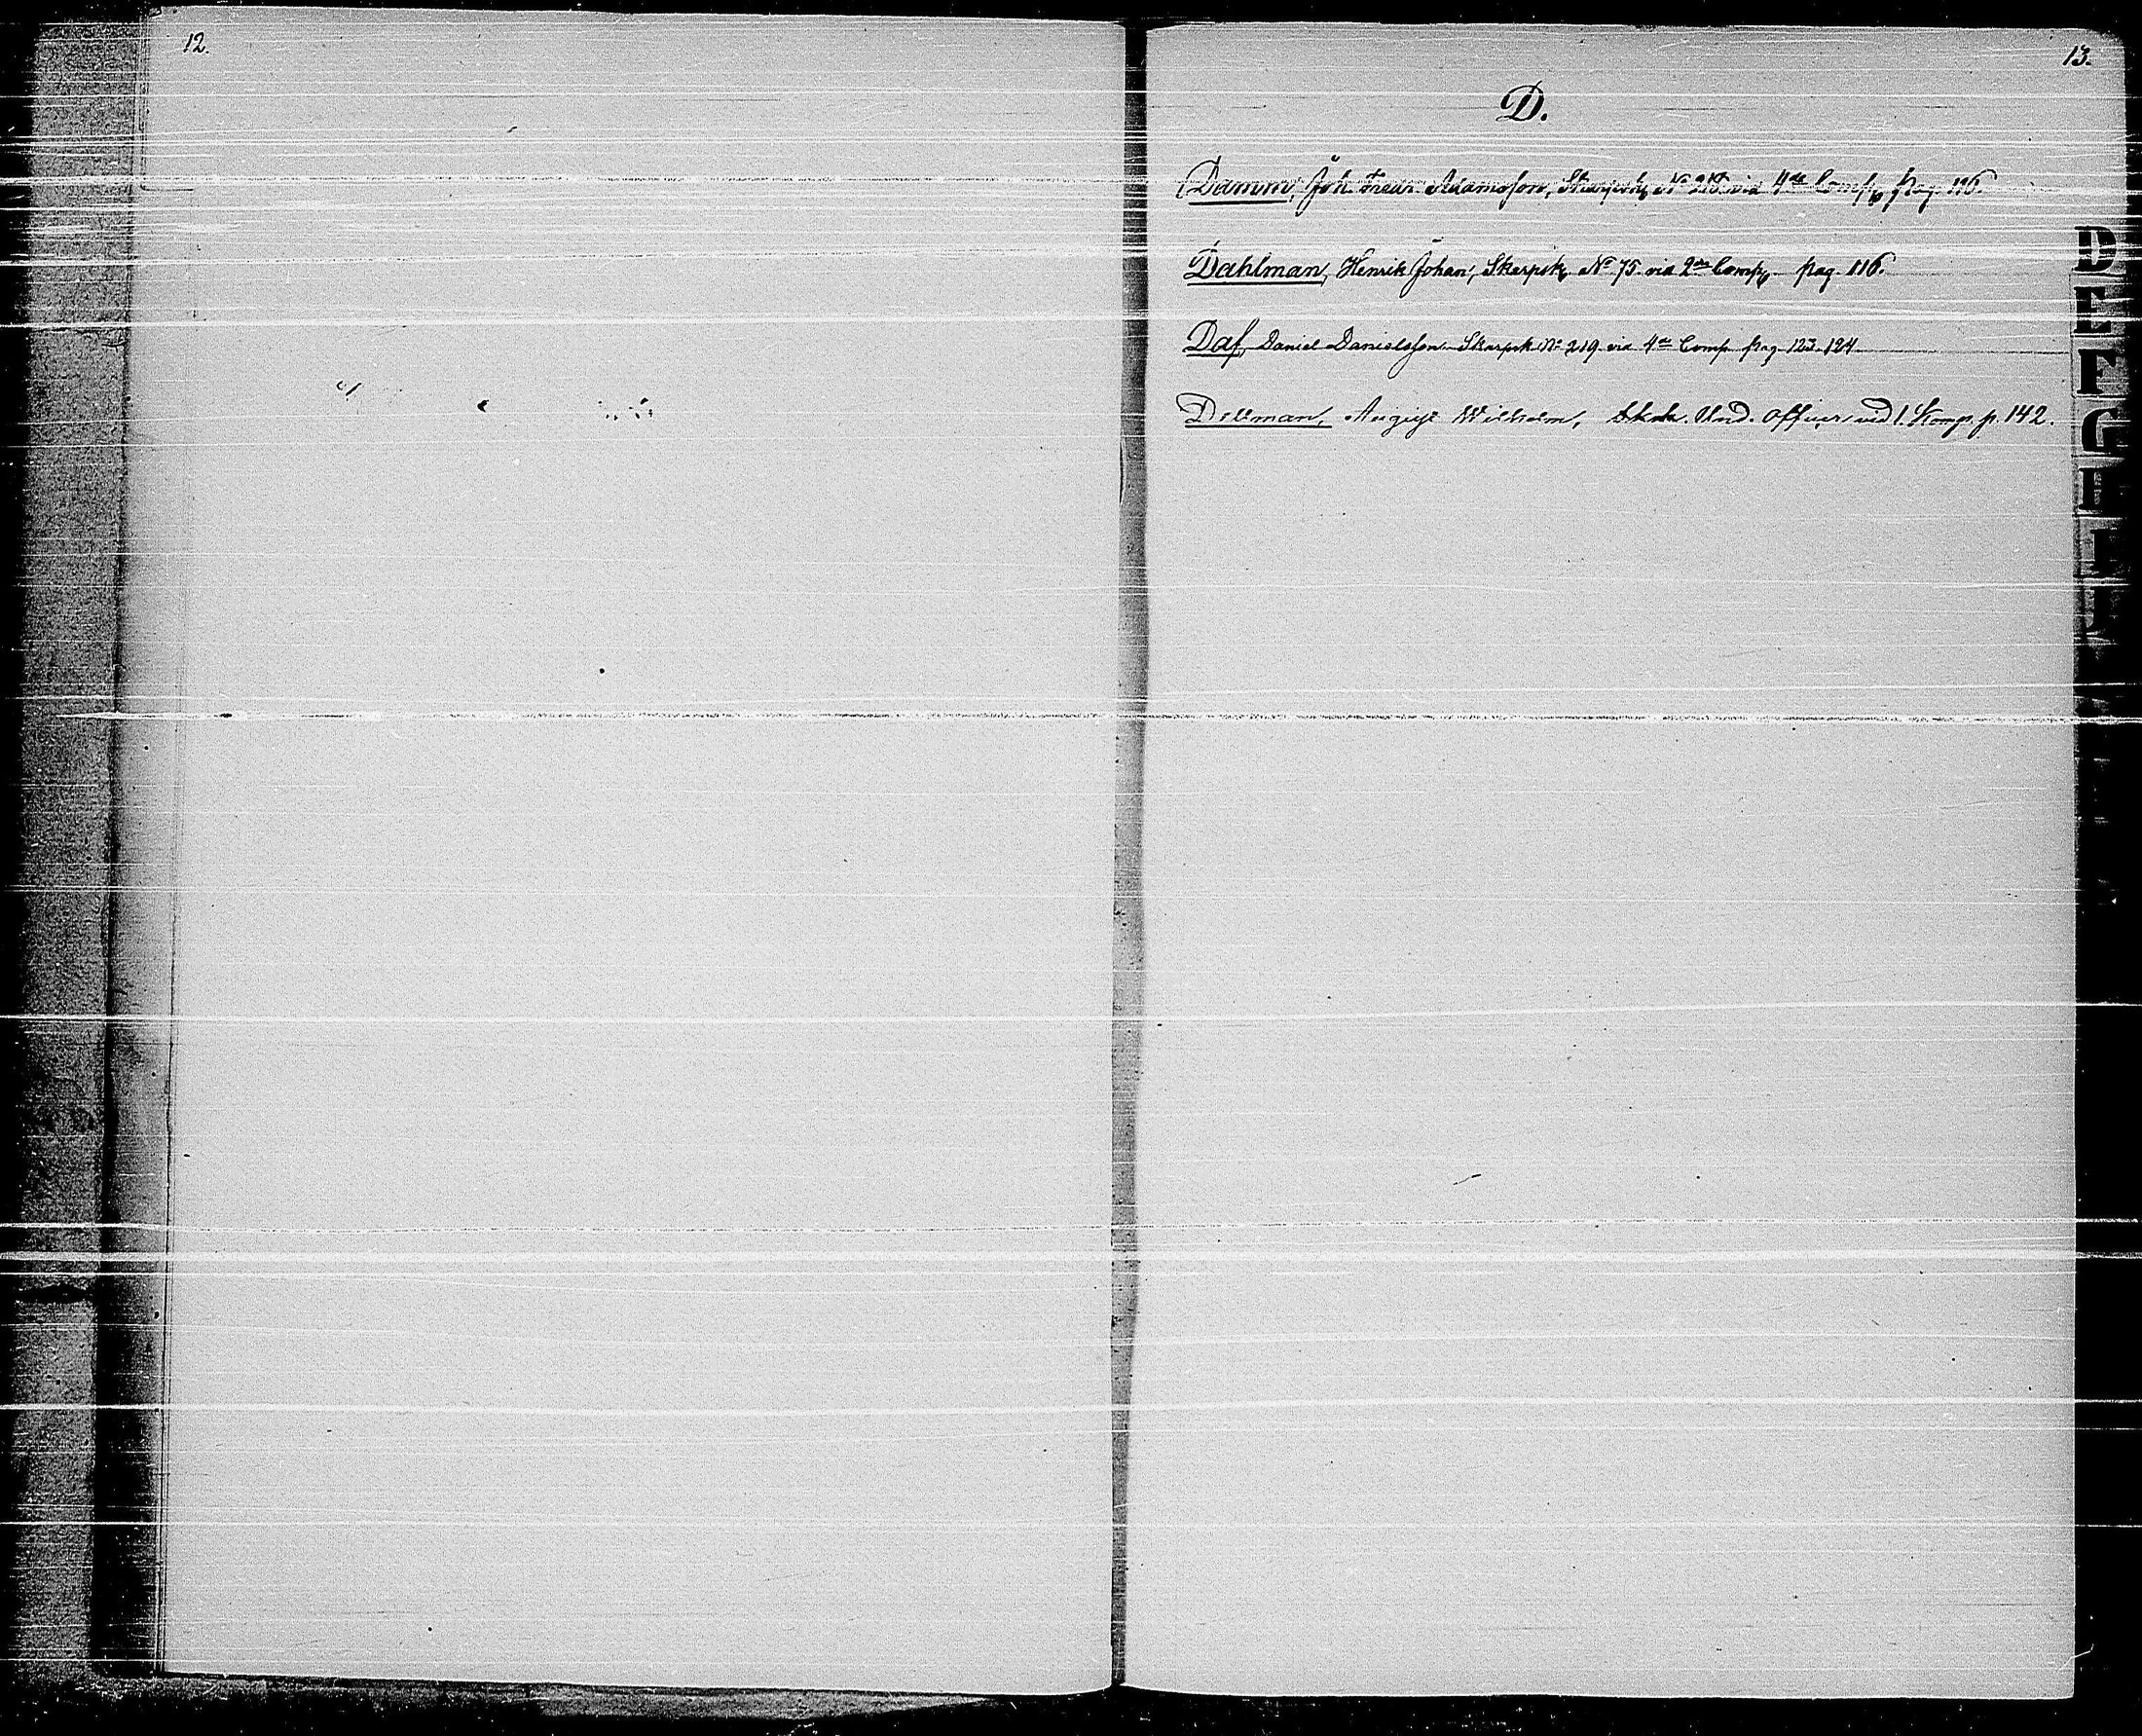 12.
13.
D.
Damm, Joh. Fredr. Adamsson, Skarpsk. No 218 vid 4de Comp. pag. 116.
Dahlman, Henrik Johan, Skarpsk. No 75 vid 2dra Comp. pag. 116.
Daf, Daniel Danielsson Skarpsk No 219 vid 4de Comp pag 123. 124
Dillman, August Wilhelm, Und. officer vid 1. Komp. p. 142.
D
E
F
G